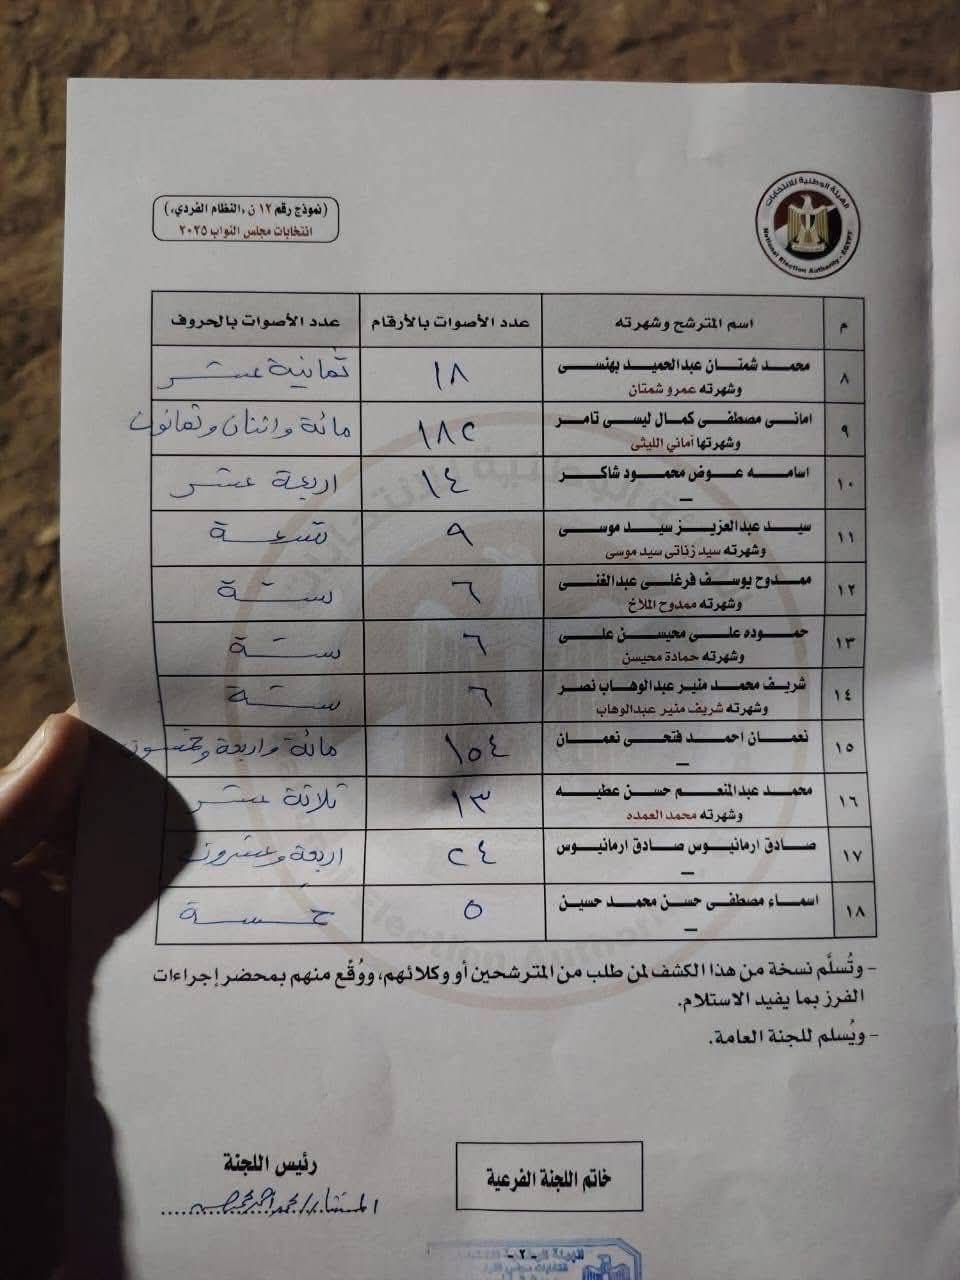 الهيئة الوطنية للانتخابات
National Election Authority - EGYPT
(نموذج رقم ١٢ ن ،النظام الفردي،)
انتخابات مجلس النواب ٢٠٢٥
م اسم المترشح وشهرته عدد الأصوات بالأرقام عدد الأصوات بالحروف
٨ محمد شمتان عبدالحميد بهنسى ١٨ ثمانية عشر
وشهرته عمرو شمتان
٩ امانى مصطفى كمال ليسى تامر ١٨٢ مائة واثنان وثمانون
وشهرتها أماني الليثى
١٠ اسامه عوض محمود شاكر ١٤ اربعة عشر
–
١١ سيد عبدالعزيز سيد موسى ٩ تسعة
وشهرته سيد زناتى سيد موسى
١٢ ممدوح يوسف فرغلى عبدالغنى ٦ ستة
وشهرته ممدوح الملاخ
١٣ حموده على محيسن على ٦ ستة
وشهرته حمادة محيسن
١٤ شريف محمد منير عبدالوهاب نصر ٦ ستة
وشهرته شريف منير عبدالوهاب
١٥ نعمان احمد فتحى نعمان ١٥٤ مائة واربعة وخمسون
–
١٦ محمد عبدالمنعم حسن عطيه ١٣ ثلاثة عشر
وشهرته محمد العمده
١٧ صادق ارمانيوس صادق ارمانيوس ٢٤ اربعة وعشرون
–
١٨ اسماء مصطفى حسن محمد حسين ٥ خمسة
–
- وتُسلَّم نسخة من هذا الكشف لمن طلب من المترشحين أو وكلائهم، ووُقِّع منهم بمحضر إجراءات
الفرز بما يفيد الاستلام.
- ويُسلم للجنة العامة.
رئيس اللجنة
خاتم اللجنة الفرعية
المستشار/ محمد احمد
- ٢ -